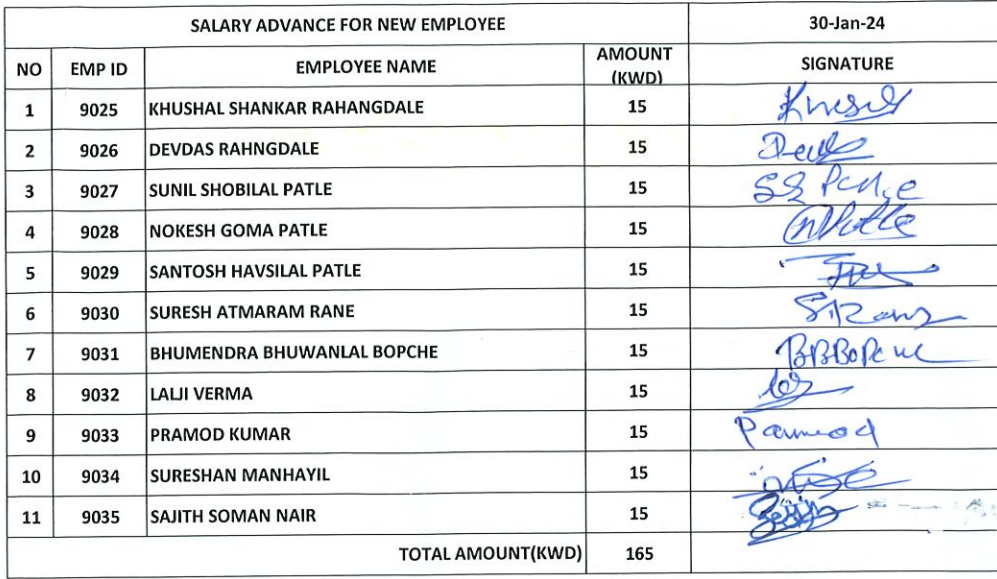 SALARY ADVANCE FOR NEW EMPLOYEE 30-Jan-24
NO EMP ID EMPLOYEE NAME AMOUNT (KWD) SIGNATURE
1 9025 KHUSHAL SHANKAR RAHANGDALE 15
2 9026 DEVDAS RAHNGDALE 15
3 9027 SUNIL SHOBILAL PATLE 15
4 9028 NOKESH GOMA PATLE 15
5 9029 SANTOSH HAVSILAL PATLE 15
6 9030 SURESH ATMARAM RANE 15
7 9031 BHUMENDRA BHUWANLAL BOPCHE 15
8 9032 LALJI VERMA 15
9 9033 PRAMOD KUMAR 15
10 9034 SURESHAN MANHAYIL 15
11 9035 SAJITH SOMAN NAIR 15
TOTAL AMOUNT(KWD) 165